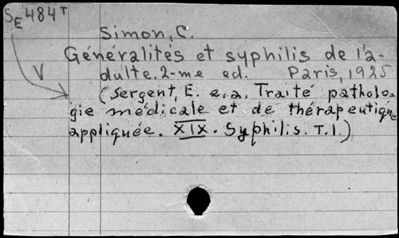 SE 484T
Simon, C.
Généralités et syphilis de l'a-
dulte. 2-me ed. Paris, 1925
V
(Sergent, E. e.a. Traité patholo-
gie médicale et de thérapeutique
appliquée. XIX. Syphilis. T.1.)